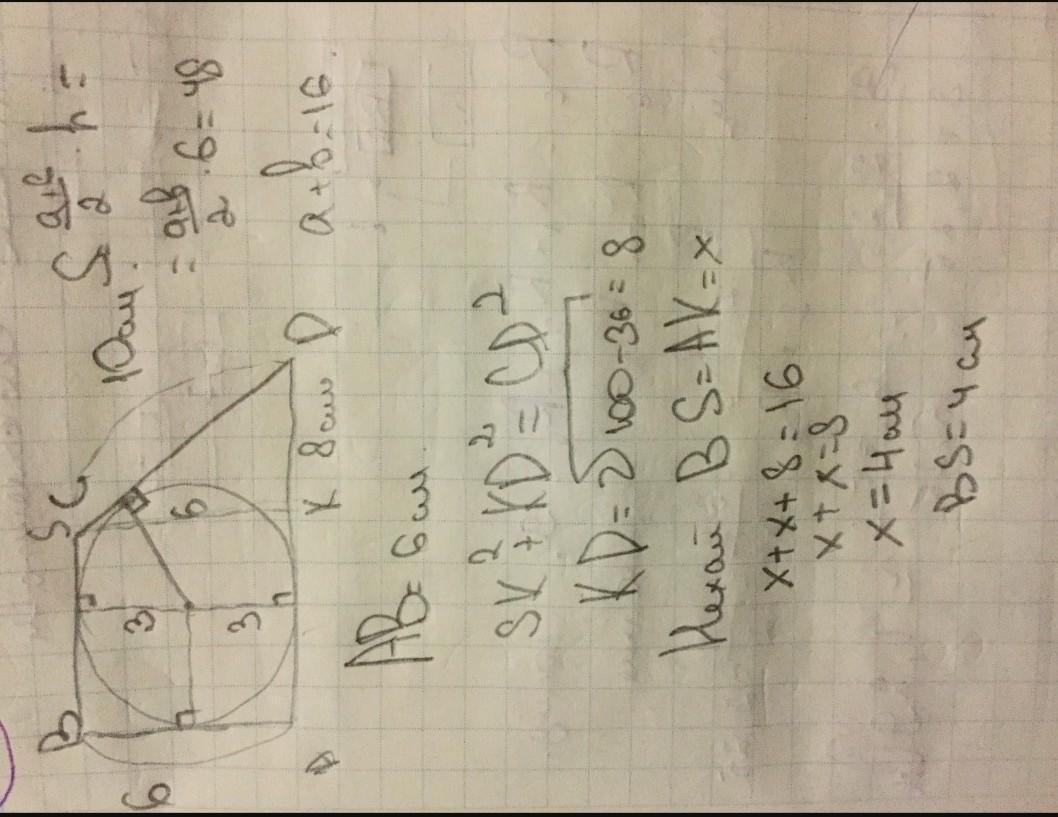 B
S C
10 см.
6
3
3
6
A
K
8 см
D
S a+b/2 · h =
= a+b/2 · 6 = 48
a+b=16.
AB= 6 см.
SK² + KD² = CD²
KD = √100-36 = 8
BS=AK=x
x+x+8=16
x+x=8
x=4 см
BS=4 см